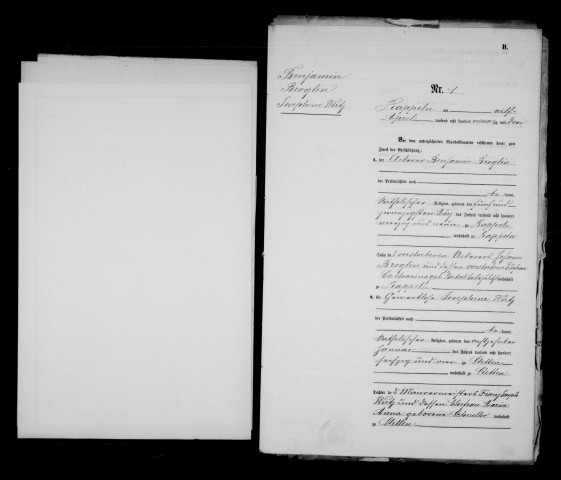 B.
Benjamin
Broglin
Josephine Wirtz
Nr. 1
Kappeln am
April tausend acht hundert neunzig und drei
Vor dem unterzeichneten Standesbeamten erschienen heute zum
Zweck der Eheschließung:
1. der Ackerer Benjamin Broglin
der Persönlichkeit nach
kannt,
katholischer Religion, geboren den fünf und
zwanzigsten des Jahres tausend acht hundert
vierzig und neun zu Kappeln
wohnhaft zu Kappeln
Sohn des verstorbenen Ackerers Johann
Broglin und dessen verstorbenen Ehefrau
Catharina geb.
zu Kappeln
2. die Gewerblose Josephine Wirtz
der Persönlichkeit nach
kannt,
katholischer Religion, geboren den
Januar des Jahres tausend acht hundert
sechzig und vier zu Stetten
wohnhaft zu Stetten
Tochter des Maurermeisters Franz Joseph
Wirtz und dessen Ehefrau Maria
Anna geborene wohnhaft
zu Stetten